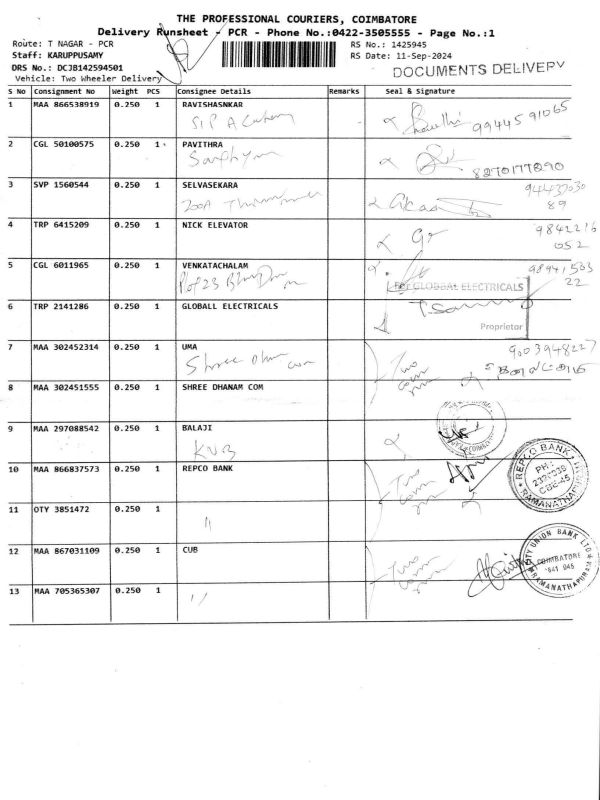 THE PROFESSIONAL COURIERS, COIMBATORE
Delivery Runsheet - PCR - Phone No.:0422-3505555 - Page No.:1
Route: T NAGAR - PCR RS No.: 1425945
Staff: KARUPPUSAMY RS Date: 11-Sep-2024
DRS No.: DCJB142594501 DOCUMENTS DELIVERY
Vehicle: Two Wheeler Delivery
S No Consignment No Weight PCS Consignee Details Remarks Seal & Signature
1 MAA 866538919 0.250 1 RAVISHASNKAR
SIP Academy 9944591065
2 CGL 50100575 0.250 1 PAVITHRA
8270177090
3 SVP 1560544 0.250 1 SELVASEKARA 944373030
89
4 TRP 6415209 0.250 1 NICK ELEVATOR 9842216
052
5 CGL 6011965 0.250 1 VENKATACHALAM 98941503
Plot 23 22
For GLOBBAL ELECTRICALS
6 TRP 2141286 0.250 1 GLOBALL ELECTRICALS
Proprietor
7 MAA 302452314 0.250 1 UMA 9003948227
Shree Dhanam com Two
8 MAA 302451555 0.250 1 SHREE DHANAM COM
9 MAA 297088542 0.250 1 BALAJI
KVB
10 MAA 866837573 0.250 1 REPCO BANK Two
REPCO BANK
PH:
2321038
CBE-45
RAMANATHAPURAM
11 OTY 3851472 0.250 1
"
12 MAA 867031109 0.250 1 CUB Two
CITY UNION BANK LTD
COIMBATORE
641 045
RAMANATHAPURAM
13 MAA 705365307 0.250 1
"